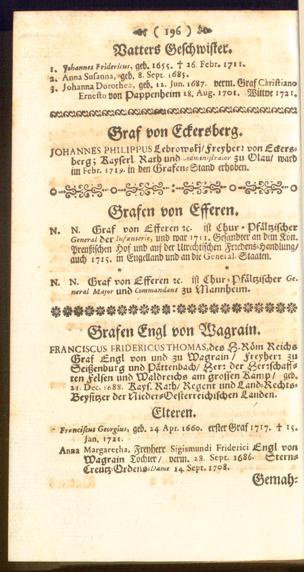 ( 196 )
Vatters Geschwister.
1. Johannes Fridericus, geb. 1655. † 26. Febr. 1711.
2. Anna Susanna, geb. 8. Sept. 1685.
3. Johanna Dorothea, geb. 12. Jun. 1687. verm. Graf Christiano
Ernesto von Pappenheim 18. Aug. 1701. Wittwe 1721.
Graf von Eckersberg.
JOHANNES PHILIPPUS Lebrowski/ Freyherr von Eckers-
berg; Kayserl. Rath und Administrator zu Olau/ ward
im Febr. 1719. in den Grafen-Stand erhoben.
Grafen von Efferen.
N. N. Graf von Efferen ꝛc. ist Chur-Pfältzischer
General der Infanterie, und war 1711. Gesandter an dem Kön.
Preussischen Hof und auf der Utrechtischen Friedens-Handlung/
auch 1715. in Engelland und an die General-Staaten.
*
N. N. Graf von Efferen ꝛc. ist Chur-Pfältzischer Ge-
neral Major und Commendant zu Mannheim.
Grafen Engl von Wagrain.
FRANCISCUS FRIDERICUS THOMAS, des H. Röm Reichs
Graf Engl von und zu Wagrain/ Freyherr zu
Seißenburg und Pättenbach/ Herr der Herrschaff-
ten Felsen und Waldreichs am grossen Kamp/ geb.
21. Dec. 1688. Kays. Rath/ Regent und Land-Rechts-
Beysitzer der Nieder-Oesterreichischen Landen.
Elteren.
Franciscus Georgius, geb. 24. Apr. 1660. erster Graf 1717. † 15.
Jan. 1721.
Anna Margaretha, Freyherr Sigismundi Friderici Engl von
Wagrain Tochter/ verm. 28. Sept. 1686. Stern-
Creutz-Ordens-Dame 14. Sept. 1708.
Gemah-